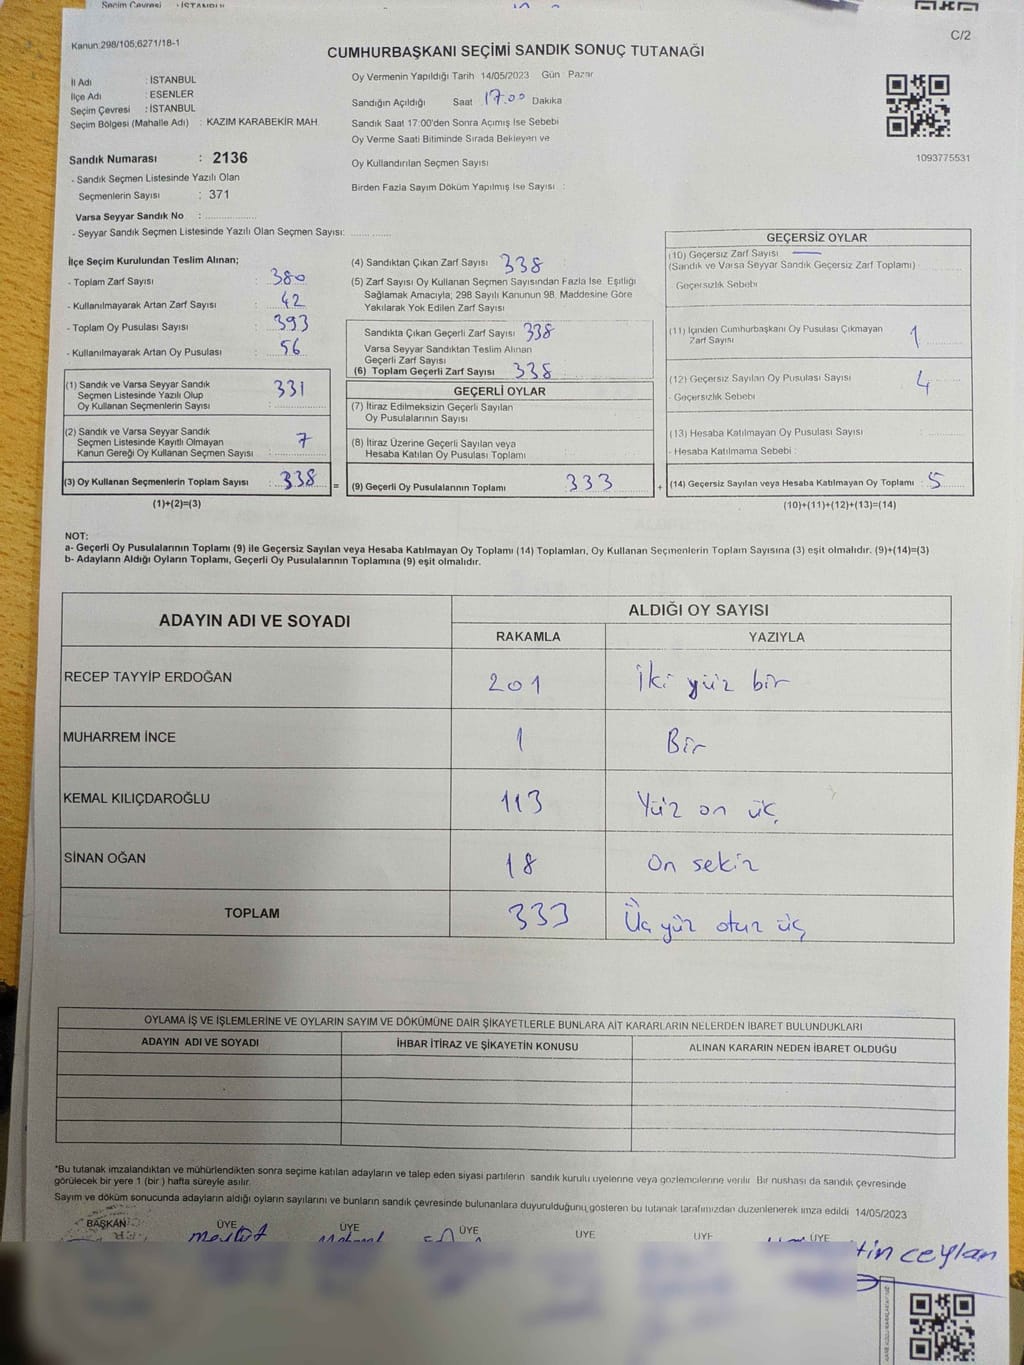 Seçim Çevresi : İSTANBUL
Kanun:298/105;6271/18-1
C/2
CUMHURBAŞKANI SEÇİMİ SANDIK SONUÇ TUTANAĞI
İl Adı : İSTANBUL
İlçe Adı : ESENLER
Seçim Çevresi : İSTANBUL
Seçim Bölgesi (Mahalle Adı) : KAZIM KARABEKİR MAH.
Oy Vermenin Yapıldığı Tarih 14/05/2023 Gün Pazar
Sandığın Açıldığı Saat 17.00 Dakika
Sandık Saat 17:00'den Sonra Açımış İse Sebebi
Oy Verme Saati Bitiminde Sırada Bekleyen ve
Oy Kullandırılan Seçmen Sayısı
Birden Fazla Sayım Döküm Yapılmış İse Sayısı :
1093775531
Sandık Numarası : 2136
- Sandık Seçmen Listesinde Yazılı Olan
Seçmenlerin Sayısı : 371
Varsa Seyyar Sandık No : ..................
- Seyyar Sandık Seçmen Listesinde Yazılı Olan Seçmen Sayısı: ..............
İlçe Seçim Kurulundan Teslim Alınan;
- Toplam Zarf Sayısı : 380
- Kullanılmayarak Artan Zarf Sayısı : 42
- Toplam Oy Pusulası Sayısı : 393
- Kullanılmayarak Artan Oy Pusulası : 56
(1) Sandık ve Varsa Seyyar Sandık
Seçmen Listesinde Yazılı Olup
Oy Kullanan Seçmenlerin Sayısı : 331
(2) Sandık ve Varsa Seyyar Sandık
Seçmen Listesinde Kayıtlı Olmayan
Kanun Gereği Oy Kullanan Seçmen Sayısı : 7
(3) Oy Kullanan Seçmenlerin Toplam Sayısı : 338 =
(1)+(2)=(3)
(4) Sandıktan Çıkan Zarf Sayısı 338
(5) Zarf Sayısı Oy Kullanan Seçmen Sayısından Fazla İse, Eşitliği
Sağlamak Amacıyla; 298 Sayılı Kanunun 98. Maddesine Göre
Yakılarak Yok Edilen Zarf Sayısı
Sandıkta Çıkan Geçerli Zarf Sayısı 338
Varsa Seyyar Sandıktan Teslim Alınan
Geçerli Zarf Sayısı
(6) Toplam Geçerli Zarf Sayısı 338
GEÇERLİ OYLAR
(7) İtiraz Edilmeksizin Geçerli Sayılan
Oy Pusulalarının Sayısı
(8) İtiraz Üzerine Geçerli Sayılan veya
Hesaba Katılan Oy Pusulası Toplamı
(9) Geçerli Oy Pusulalarının Toplamı 333 +
GEÇERSİZ OYLAR
(10) Geçersiz Zarf Sayısı —
(Sandık ve Varsa Seyyar Sandık Geçersiz Zarf Toplamı)
Geçersizlik Sebebi
(11) İçinden Cumhurbaşkanı Oy Pusulası Çıkmayan
Zarf Sayısı 1
(12) Geçersiz Sayılan Oy Pusulası Sayısı 4
Geçersizlik Sebebi
(13) Hesaba Katılmayan Oy Pusulası Sayısı
- Hesaba Katılmama Sebebi :
(14) Geçersiz Sayılan veya Hesaba Katılmayan Oy Toplamı : 5
(10)+(11)+(12)+(13)=(14)
NOT:
a- Geçerli Oy Pusulalarının Toplamı (9) ile Geçersiz Sayılan veya Hesaba Katılmayan Oy Toplamı (14) Toplamları, Oy Kullanan Seçmenlerin Toplam Sayısına (3) eşit olmalıdır. (9)+(14)=(3)
b- Adayların Aldığı Oyların Toplamı, Geçerli Oy Pusulalarının Toplamına (9) eşit olmalıdır.
ADAYIN ADI VE SOYADI
ALDIĞI OY SAYISI
RAKAMLA YAZIYLA
RECEP TAYYİP ERDOĞAN 201 İki yüz bir
MUHARREM İNCE 1 Bir
KEMAL KILIÇDAROĞLU 113 Yüz on üç
SİNAN OĞAN 18 On sekiz
TOPLAM 333 Üç yüz otuz üç
OYLAMA İŞ VE İŞLEMLERİNE VE OYLARIN SAYIM VE DÖKÜMÜNE DAİR ŞİKAYETLERLE BUNLARA AİT KARARLARIN NELERDEN İBARET BULUNDUKLARI
ADAYIN ADI VE SOYADI İHBAR İTİRAZ VE ŞİKAYETİN KONUSU ALINAN KARARIN NEDEN İBARET OLDUĞU
*Bu tutanak imzalandıktan ve mühürlendikten sonra seçime katılan adayların ve talep eden siyasi partilerin sandık kurulu üyelerine veya gözlemcilerine verilir. Bir nushası da sandık çevresinde
görülecek bir yere 1 (bir) hafta süreyle asılır.
Sayım ve döküm sonucunda adayların aldığı oyların sayılarını ve bunların sandık çevresinde bulunanlara duyurulduğunu gösteren bu tutanak tarafımızdan düzenlenerek imza edildi 14/05/2023
BAŞKAN ÜYE ÜYE ÜYE ÜYE ÜYE ÜYE
Mevlüt
tin ceylan